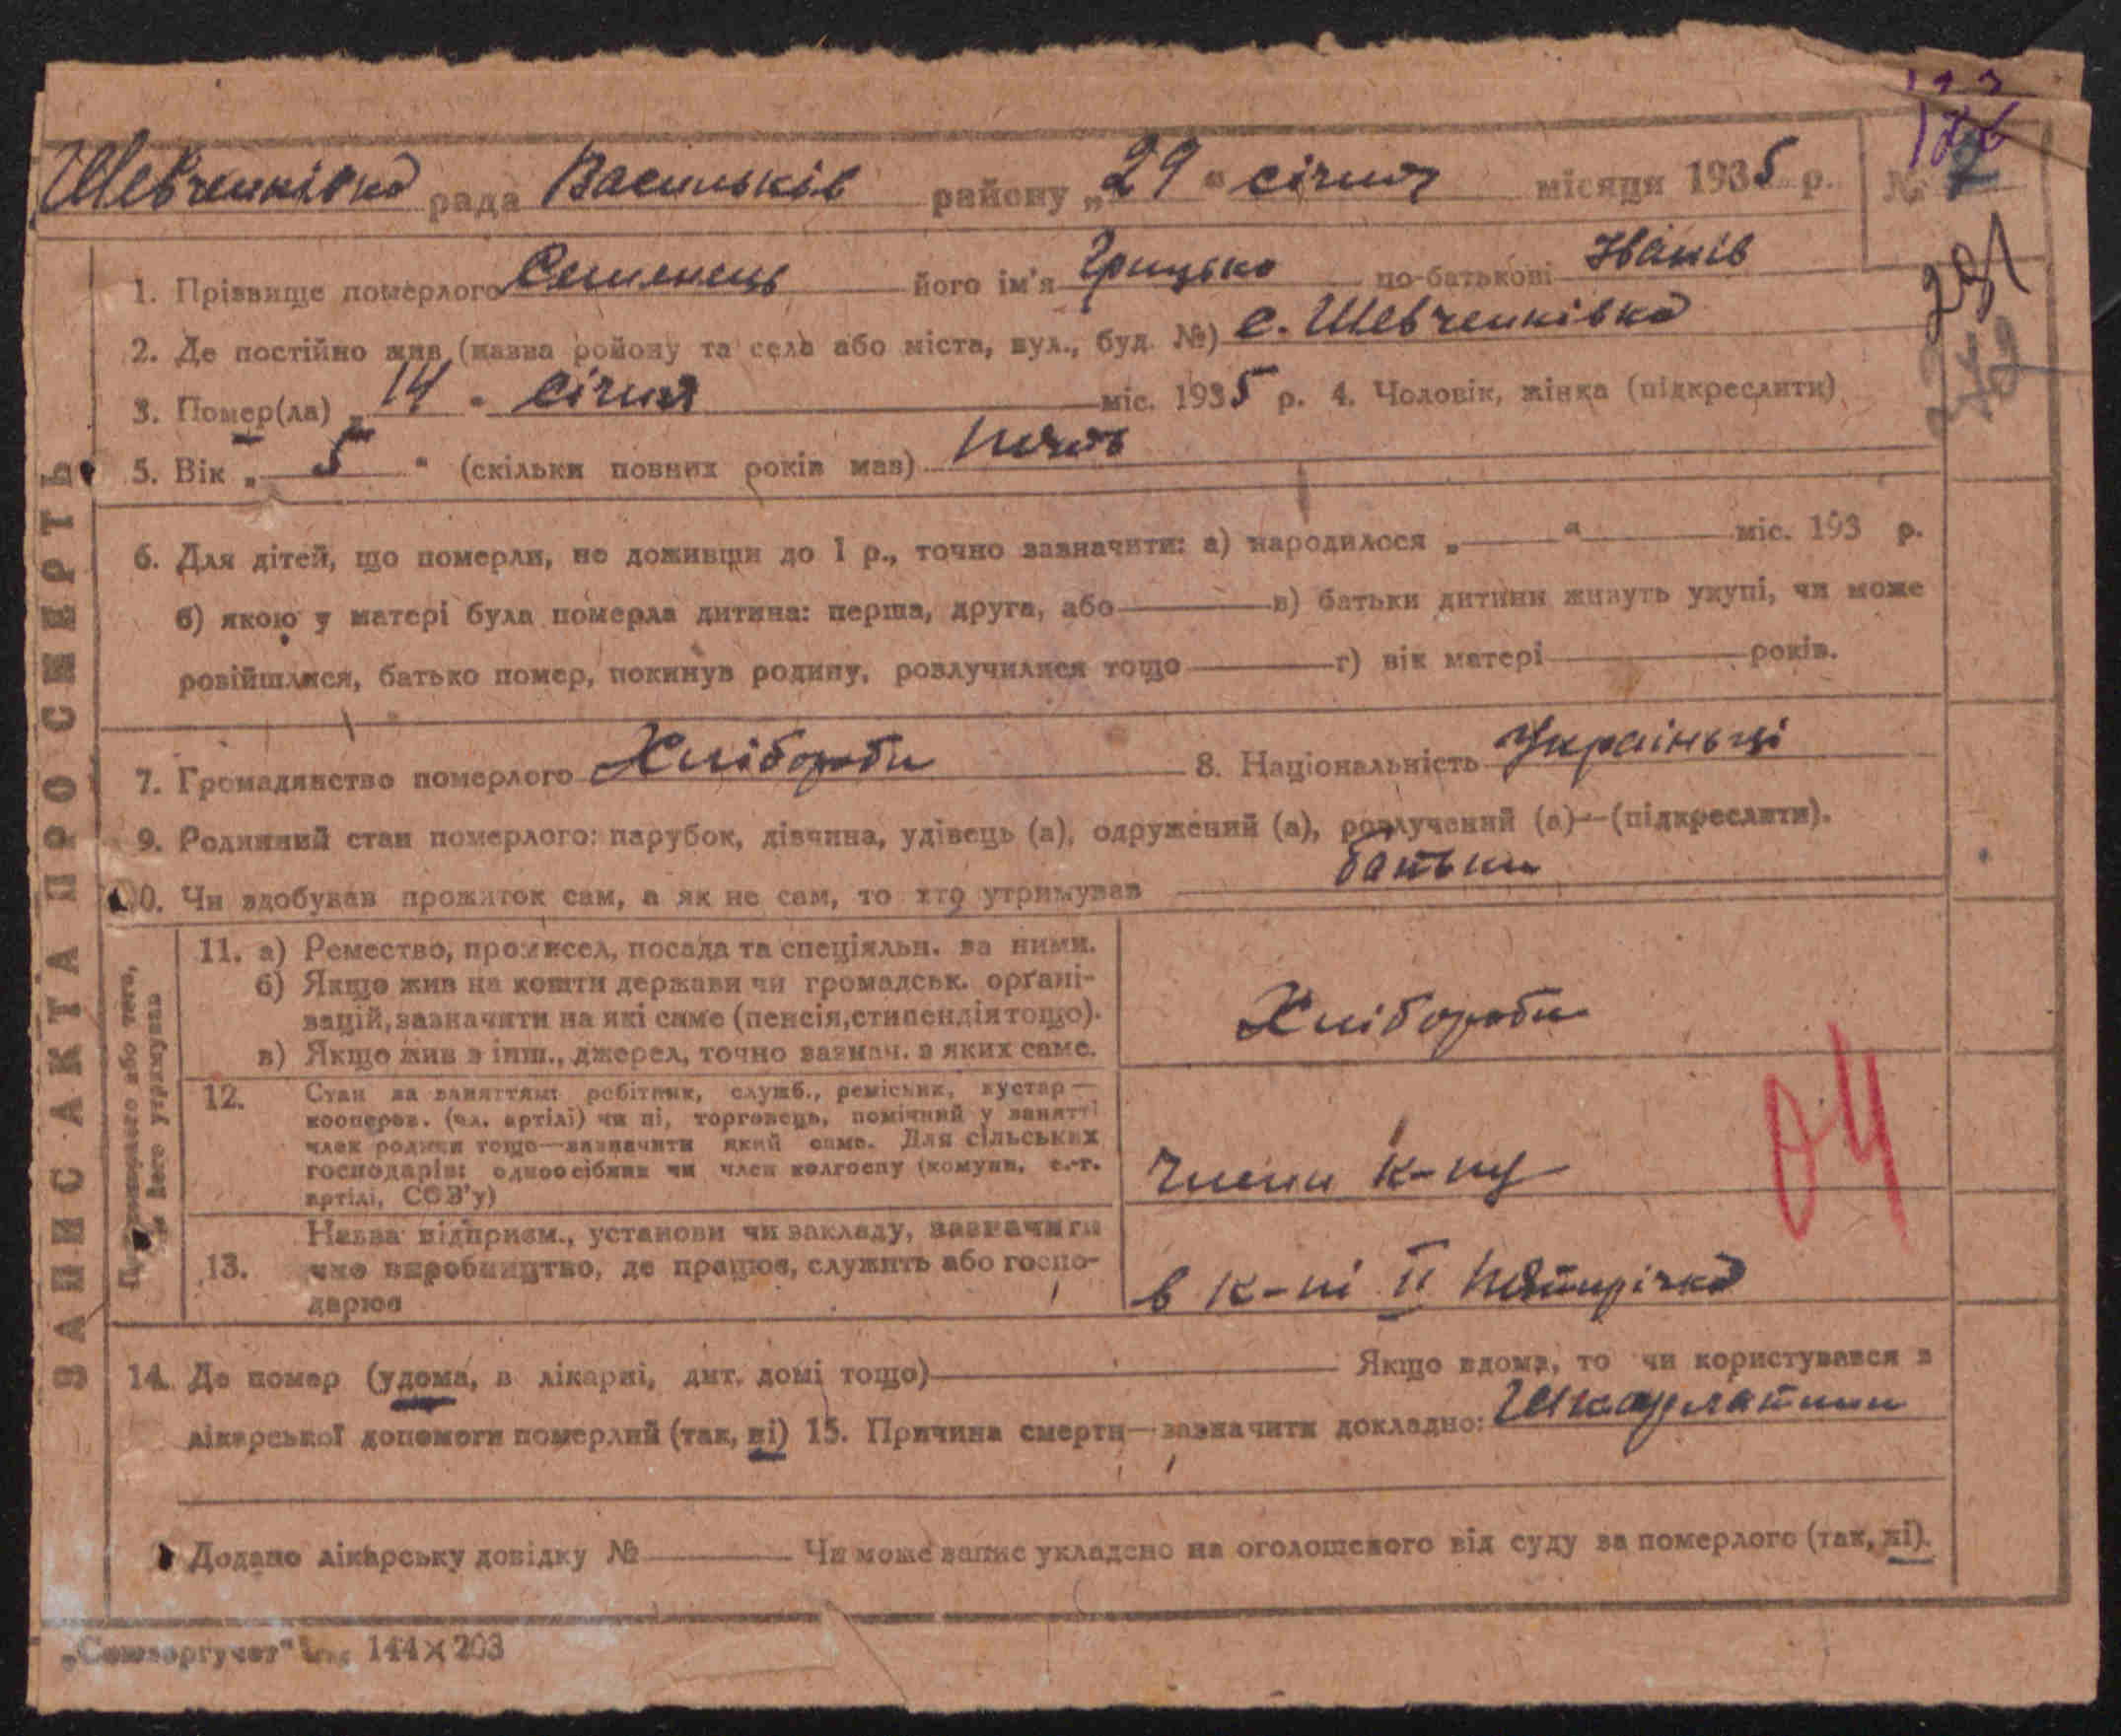 123
Шевченківка рада Васильків району „29“ січня місяця 1935 р. № 7
1. Прізвище померлого Семенець його ім'я Грицько по-батькові Іванів
291
2. Де постійно жив (назва району та села або міста, вул., буд. №) с. Шевченківка
3. Помер(ла) „14“ січня міс. 1935 р. 4. Чоловік, жінка (підкреслити)
5. Вік „5“ (скільки повних років мав) пять
6. Для дітей, що померли, не доживши до 1 р., точно зазначити: а) народилося „ “ міс. 193 р.
б) якою у матері була померла дитина: перша, друга, або в) батьки дитини живуть укупі, чи може
розійшлися, батько помер, покинув родину, розлучилися тощо г) вік матері років.
7. Громадянство померлого Хлібороби 8. Національність Українці
9. Родинний стан померлого: парубок, дівчина, удівець (а), одружений (а), розлучений (а)—(підкреслити).
10. Чи здобував прожиток сам, а як не сам, то хто утримував батьки
11. а) Ремество, промисел, посада та спеціяльн. за ними.
б) Якщо жив на кошти держави чи громадськ. орґані-
зацій, зазначити на які саме (пенсія, стипендія тощо).
в) Якщо жив з інш., джерел, точно зазнач. з яких саме.
Хлібороби
12. Стан за заняттям: робітник, служб., ремісник, кустар—
кооперов. (чл. артілі) чи ні, торговець, помічний у занятті
член родини тощо—зазначити який саме. Для сільських
господарів: одноосібник чи член колгоспу (комуни, с.-г.
артілі, СОЗ'у)
члени к-пу
04
13. Назва підприєм., установи чи закладу, зазначити
чме виробництво, де працює, служить або госпо-
дарює
в к-пі ІІ Пятирічка
14. Де помер (удома, в лікарні, дит. домі тощо) Якщо вдома, то чи користувався з
лікарської допомоги померлий (так, ні) 15. Причина смерти—зазначити докладно: Шкарлатини
Додано лікарську довідку № Чи може запис укладено на оголошеного від суду за померлого (так, ні).
„Союзоргучет“ 144×203
ЗАПИС АКТА ПРО СМЕРТЬ
Про померлого або того,
хто його утримував